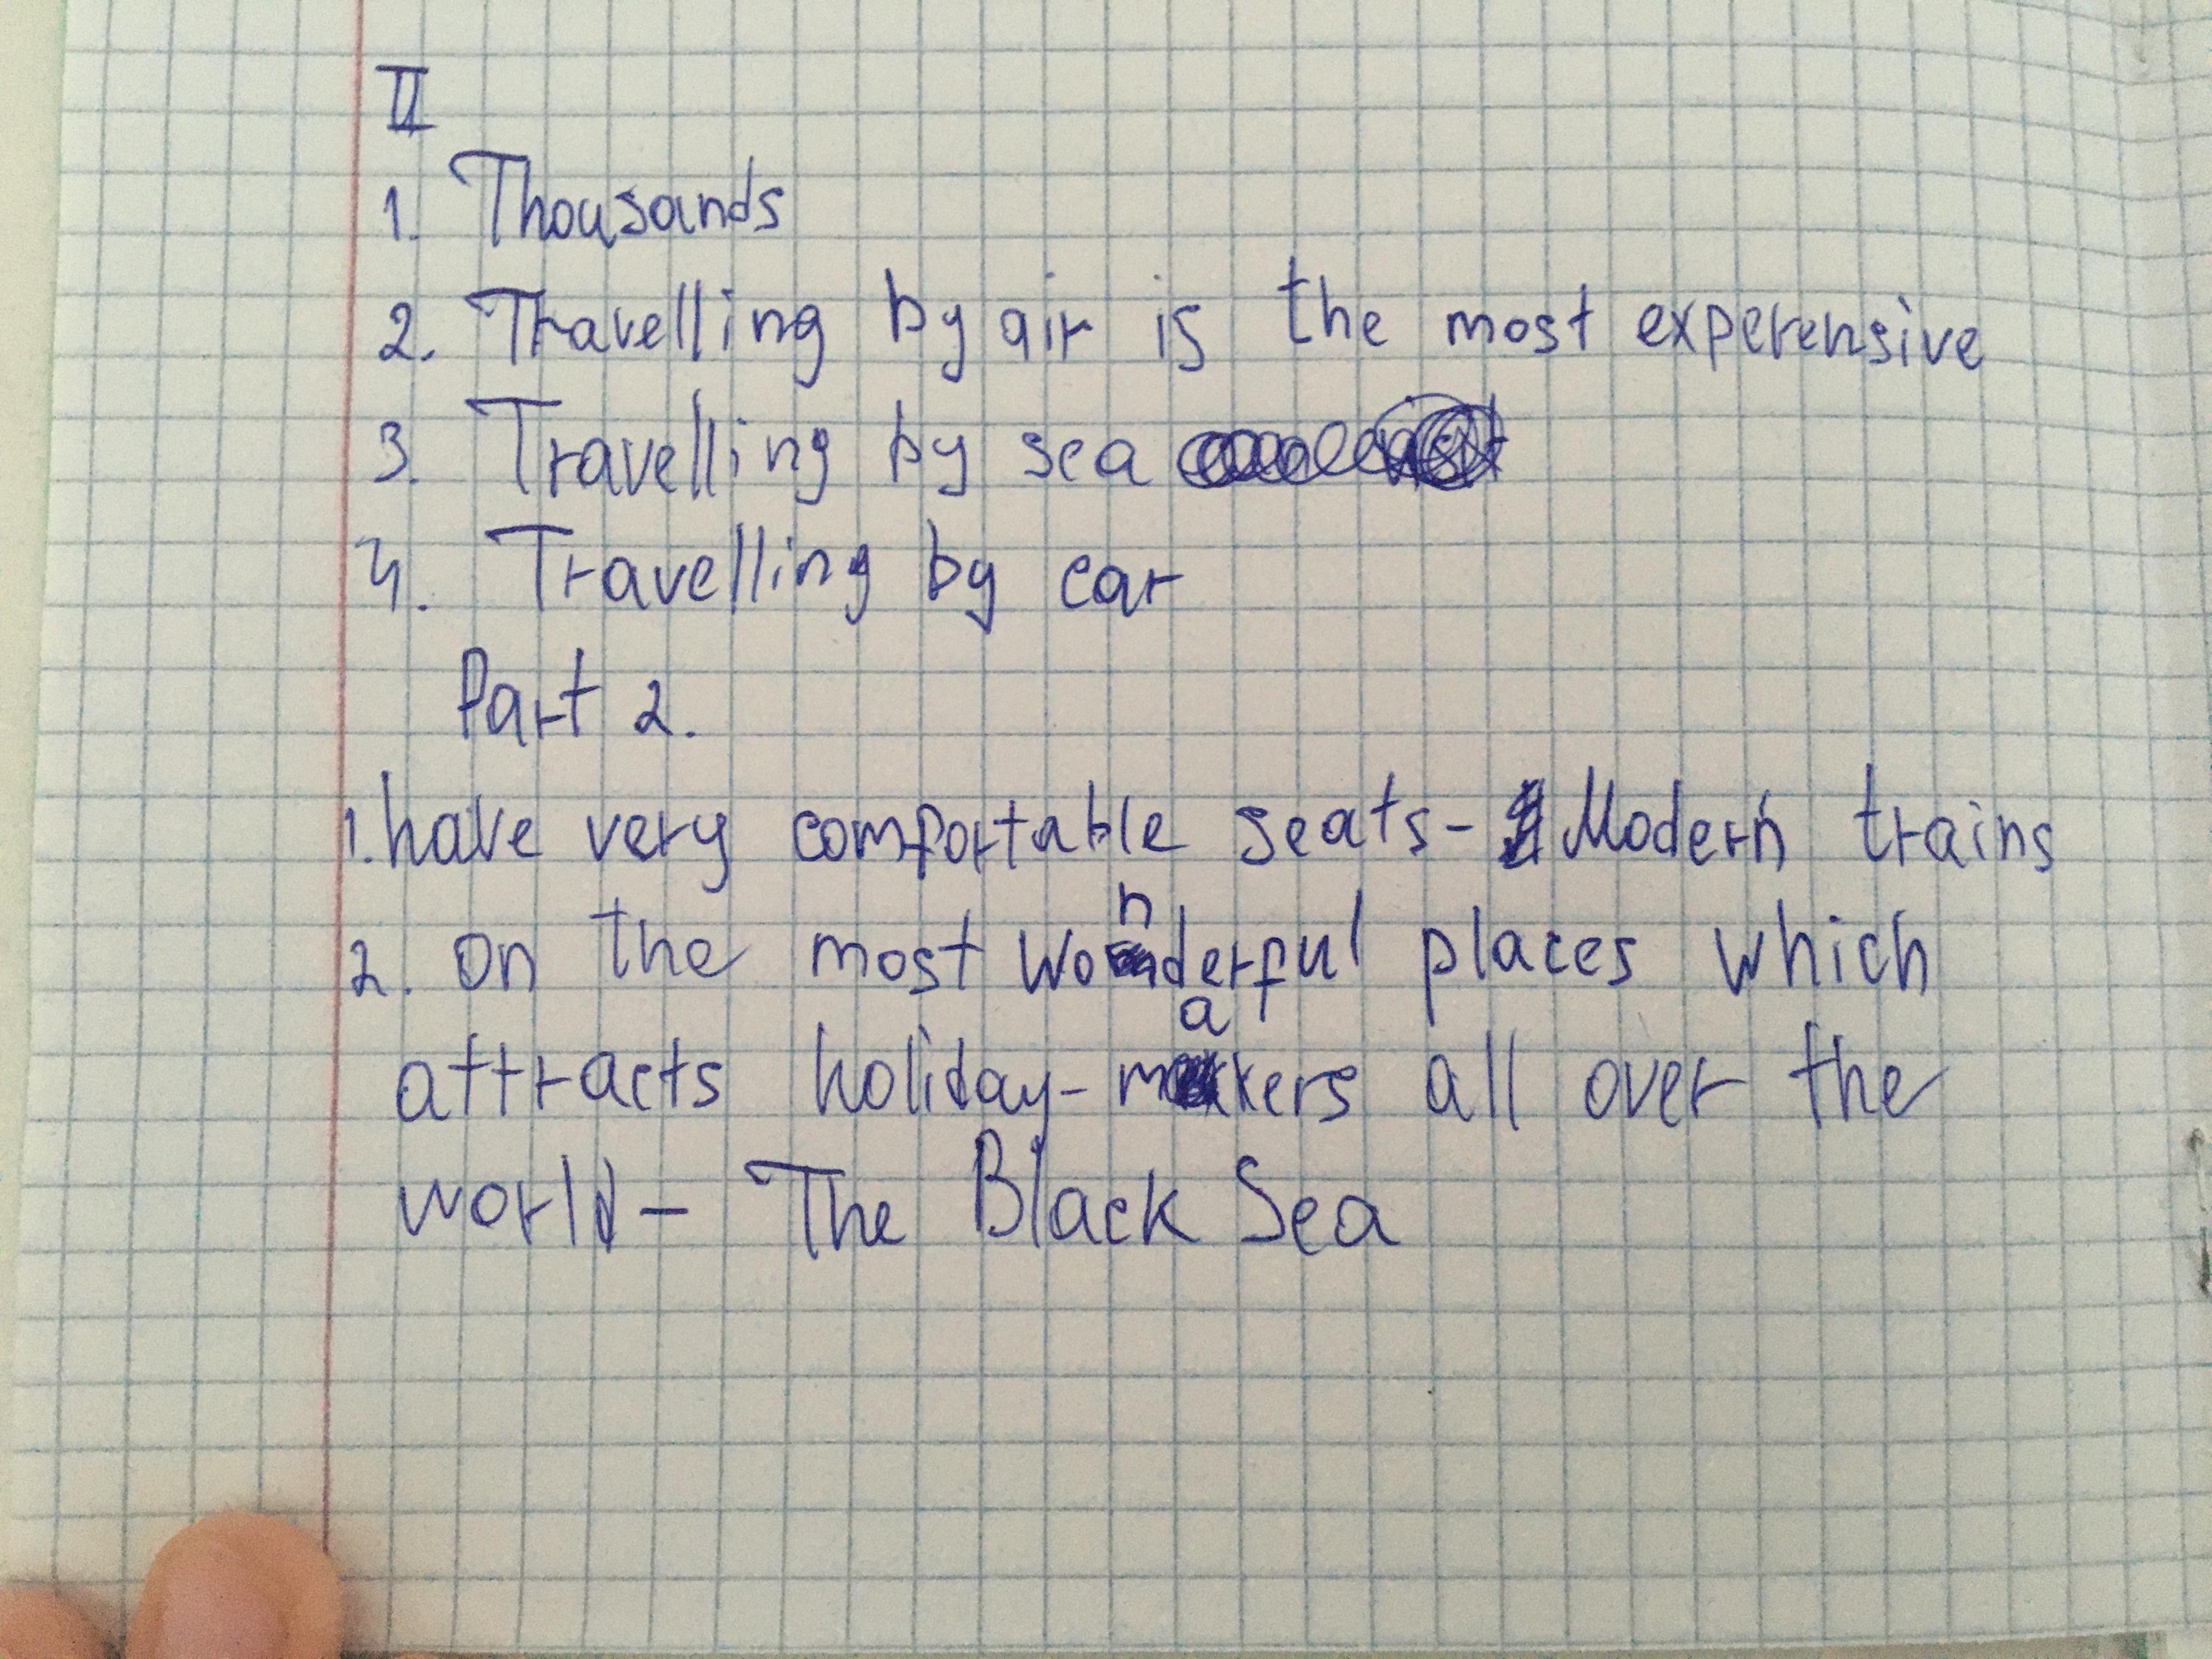 II
1. Thousands
2. Travelling by air is the most experensive
3. Travelling by sea
4. Travelling by car
Part 2.
1. have very comfortable seats - Modern trains
2. on the most wonderful places which
attracts holiday-makers all over the
world - The Black Sea